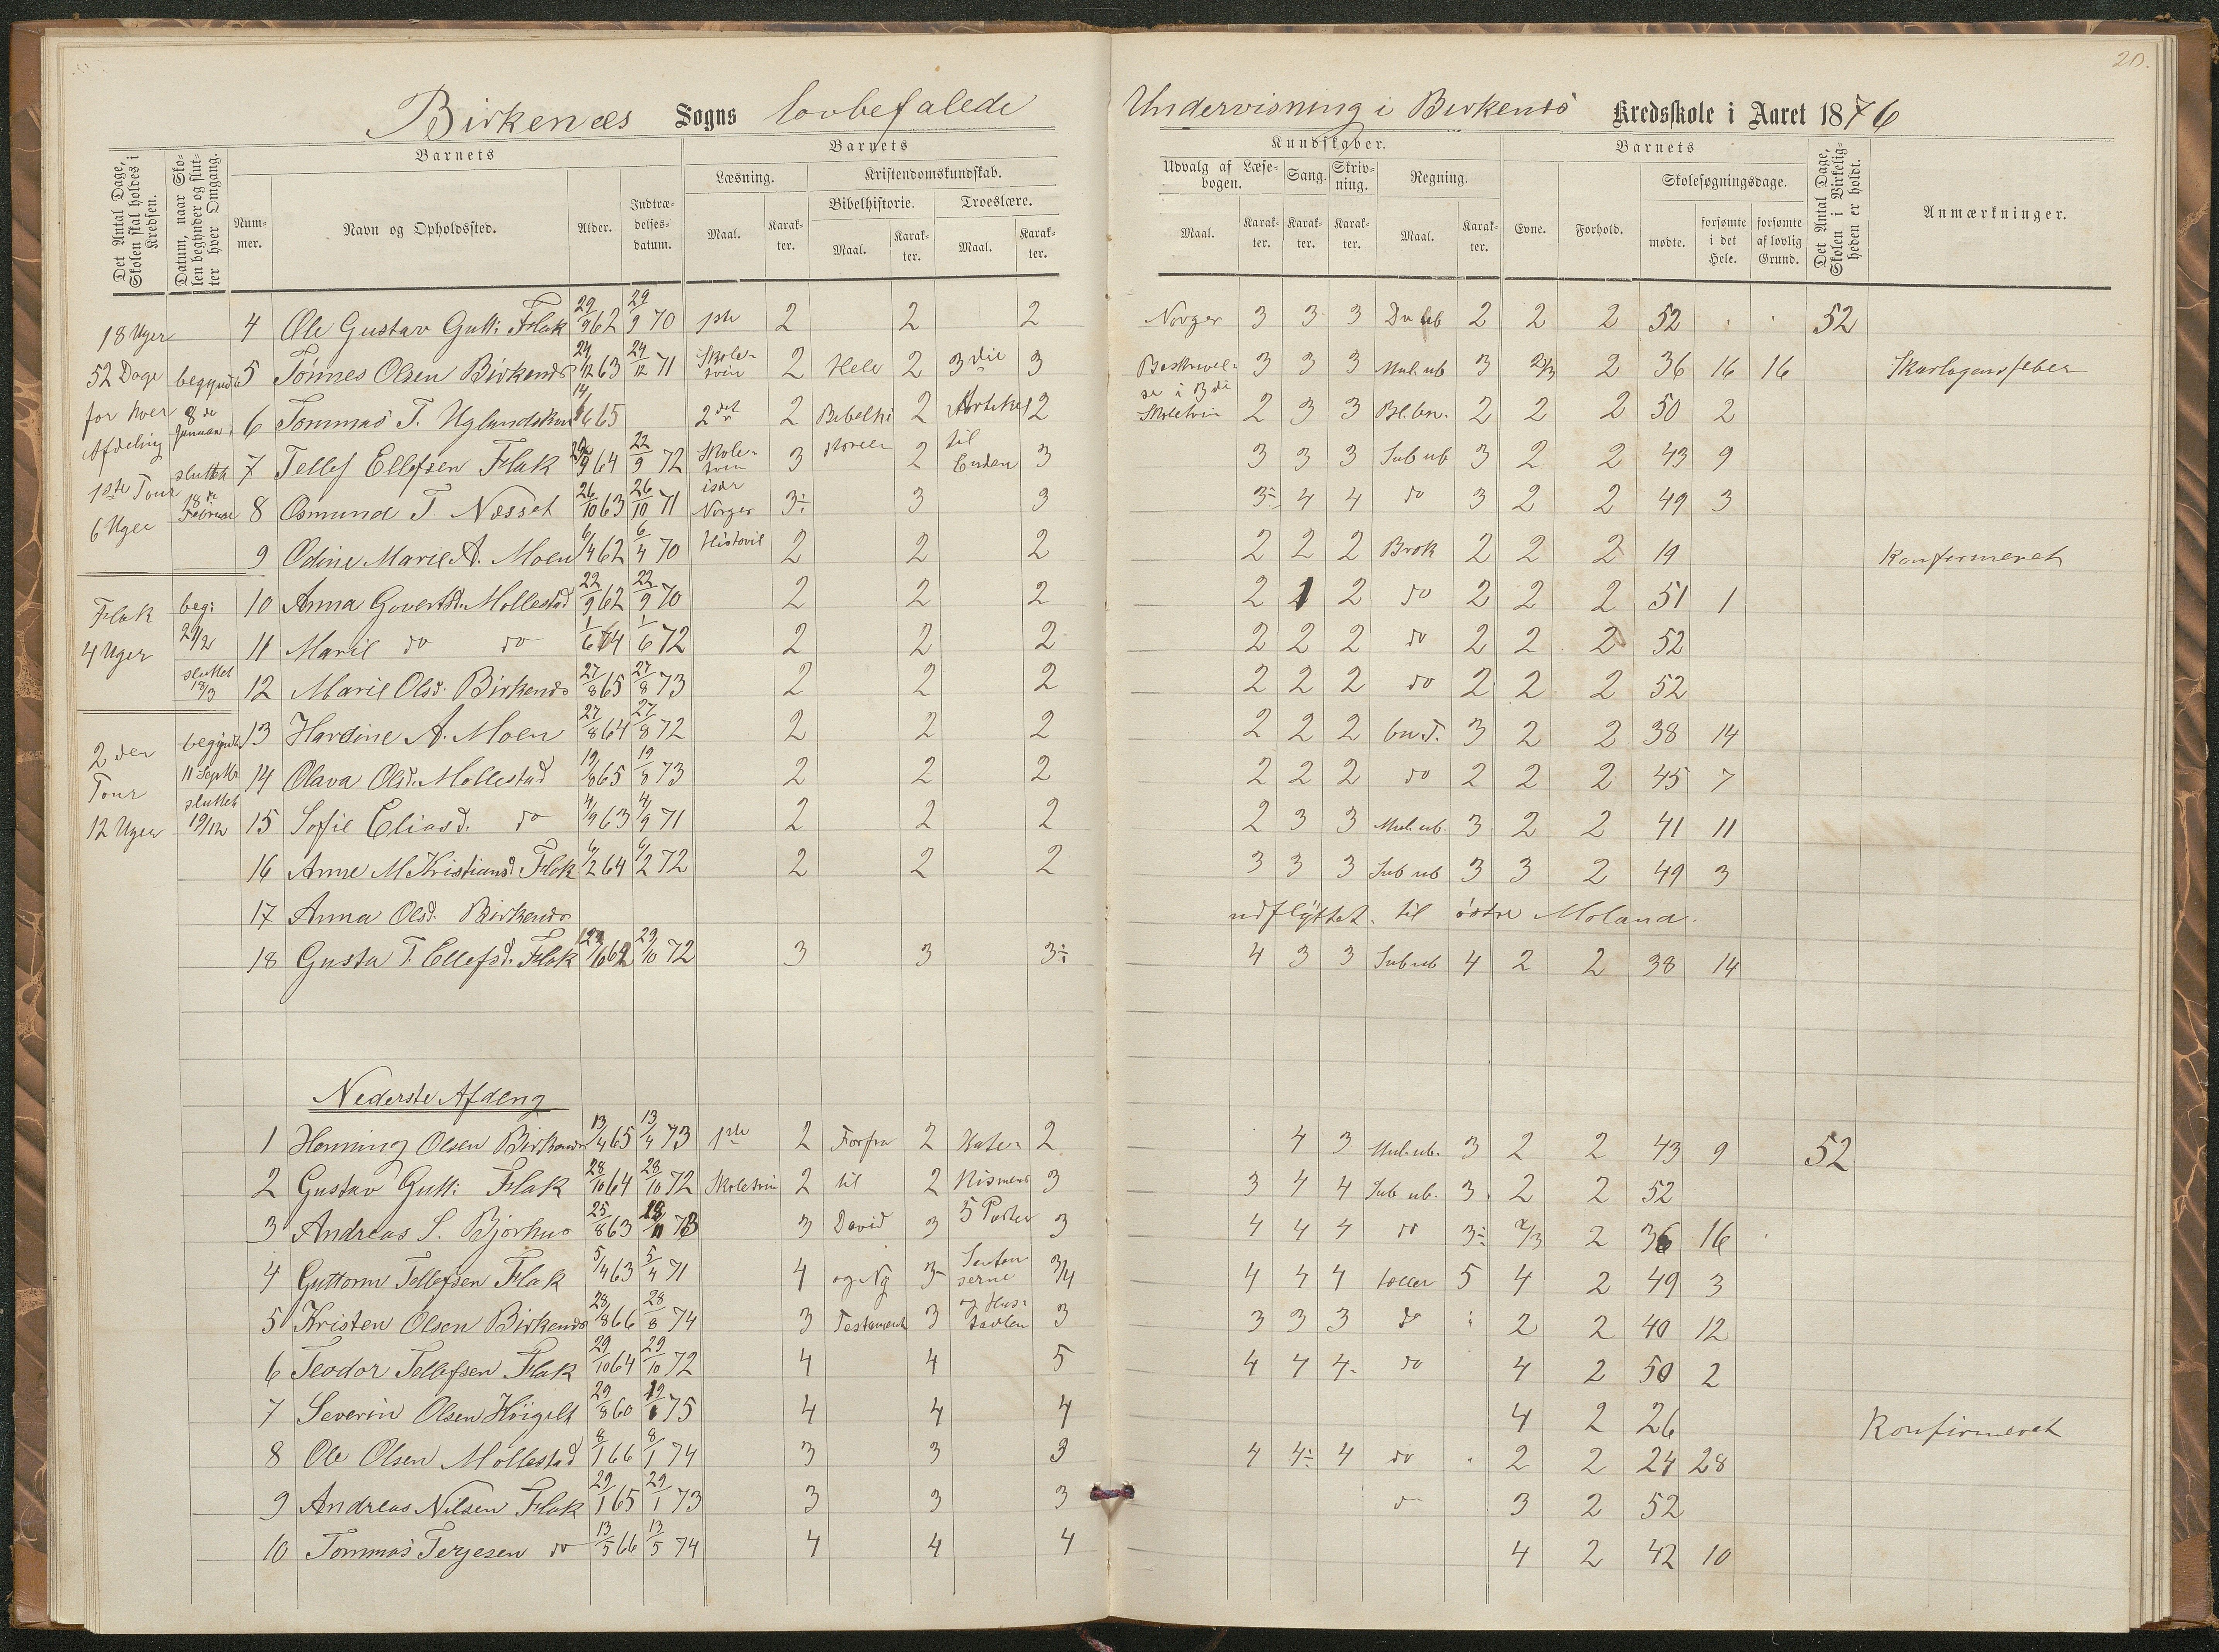 20.
Birkenæs Sogns lovbefalede Undervisning i Birkenæs Kredsskole i Aaret 1876
Det Antal Dage, Skolen skal holdes i Kredsen.
Datum, naar Skolen begynder og slutter hver Omgang.
Barnets
Nummer.
Navn og Opholdssted.
Alder.
Indtrædelsesdatum.
Barnets
Læsning.
Maal.
Karakter.
Kristendomskundskab.
Bibelhistorie.
Maal.
Karakter.
Troeslære.
Maal.
Karakter.
Kundskaber.
Udvalg af Læsebogen.
Maal.
Karakter.
Sang.
Karakter.
Skrivning.
Karakter.
Regning.
Maal.
Karakter.
Barnets
Evne.
Forhold.
Skolesøgningsdage.
mødte.
forsømte i det Hele.
forsømte af lovlig Grund.
Det Antal Dage, Skolen i Virkeligheden er holdt.
Anmærkninger.
18 Uger
52 Dage
for hver
Afdeling
1ste Tour
6 Uger
begyndte
8de
Januar
sluttet
18de
Februar
Flak
4 Uger
beg:
29/2
sluttet
18/3
2den
Tour
12 Uger
begyndte
11 Septbr
sluttet
19/12
4 Ole Gustav Gutt: Flak 29/9 62 29/9 70 1ste 2 2 2 Norges 3 3 3 2 2 2 52 . . 52
5 Tönnes Olsen Birkenæs 24/12 63 24/12 71 Skoletrin 2 Hele 2 3die 3 Beskrivelse i 3die 3 3 3 Mul. ub 3 2/3 2 36 16 16 Skarlagensfeber
6 Tommas T. Uglandskau 65 2det 2 Bibelhi 2 Artikel 2 Skoletrin 2 3 3 Bl. bn. 2 2 2 50 2
7 Tellef Ellefsen Flak 9 64 22/9 72 Skoletrin 3 storien 2 til Enden 3 3 3 3 Sub ub 3 2 2 43 9
8 Osmund T. Næsset 26/10 63 26/10 71 især Norges 3÷ 3 3 3÷ 4 4 do 3 2 2 49 3
9 Odine Marie A. Moen 6/4 62 6/4 70 Historie 2 2 2 2 2 2 Brøk 2 2 2 19 Konfirmeret
10 Anna Govertsd. Mollestad 22/9 62 22/9 70 2 2 2 2 1 2 do 2 2 2 51 1
11 Marie do do 1/6 64 1/6 72 2 2 2 2 2 2 do 2 2 2 52
12 Marie Olsd. Birkenæs 27/8 65 27/8 73 2 2 2 2 2 2 do 2 2 2 52
13 Hardine A. Moen 27/8 64 27/8 72 2 2 2 2 2 2 bn. T. 3 2 2 38 14
14 Olava Olsd. Mollestad 19/8 65 19/8 73 2 2 2 2 2 2 do 2 2 2 45 7
15 Sofie Eliasd. do 4/9 63 4/9 71 2 2 2 2 3 3 Mul. ub. 3 2 2 41 11
16 Anne M Kristiansd. Flak 6/2 64 6/2 72 2 2 2 3 3 3 Sub ub 3 3 2 49 3
17 Anna Olsd. Birkenæs udflyttet til östre Moland.
18 Gusta T. Ellefsd. Flak 29/10 72 3 3 3÷ 4 3 3 Sub ub 4 2 2 38 14
Nederste Afdeng
1 Henning Olsen Birkenæs 13/4 65 13/4 73 1ste 2 Forfra 2 Kate- 2 4 3 Mul. ub. 3 2 2 43 9 52
2 Gustav Gutt: Flak 28/10 64 28/10 72 Skoletrin 2 til 2 kismens 3 3 4 4 Sub ub. 3 2 2 52
3 Andreas S. Bjorhus 25/8 63 73 3 David 3 5 Parter 3 4 4 4 do 3÷ 2/3 2 36 16
4 Guttorm Tellefsen Flak 5/4 63 5/4 71 4 og Ny 3- Sentenserne 3/4 4 4 4 tæller 5 4 2 49 3
5 Kristen Olsen Birkenæs 28/8 66 28/8 74 3 Testament 3 og Hustavlen 3 3 3 3 do 2 2 40 12
6 Teodor Tellefsen Flak 29/10 64 29/10 72 4 4 5 4 4 4 do 4 2 50 2
7 Severin Olsen Höigilt 29/8 60 75 4 4 4 4 2 26 Konfirmeret
8 Ole Olsen Mollestad 8/1 66 8/1 74 3 3 3 4 4÷ 4 do 2 2 24 28
9 Andreas Nilsen Flak 29/1 65 29/1 73 3 3 3 3 2 52
10 Tommas Terjesen do 13/5 66 13/5 74 4 4 4 4 2 42 10